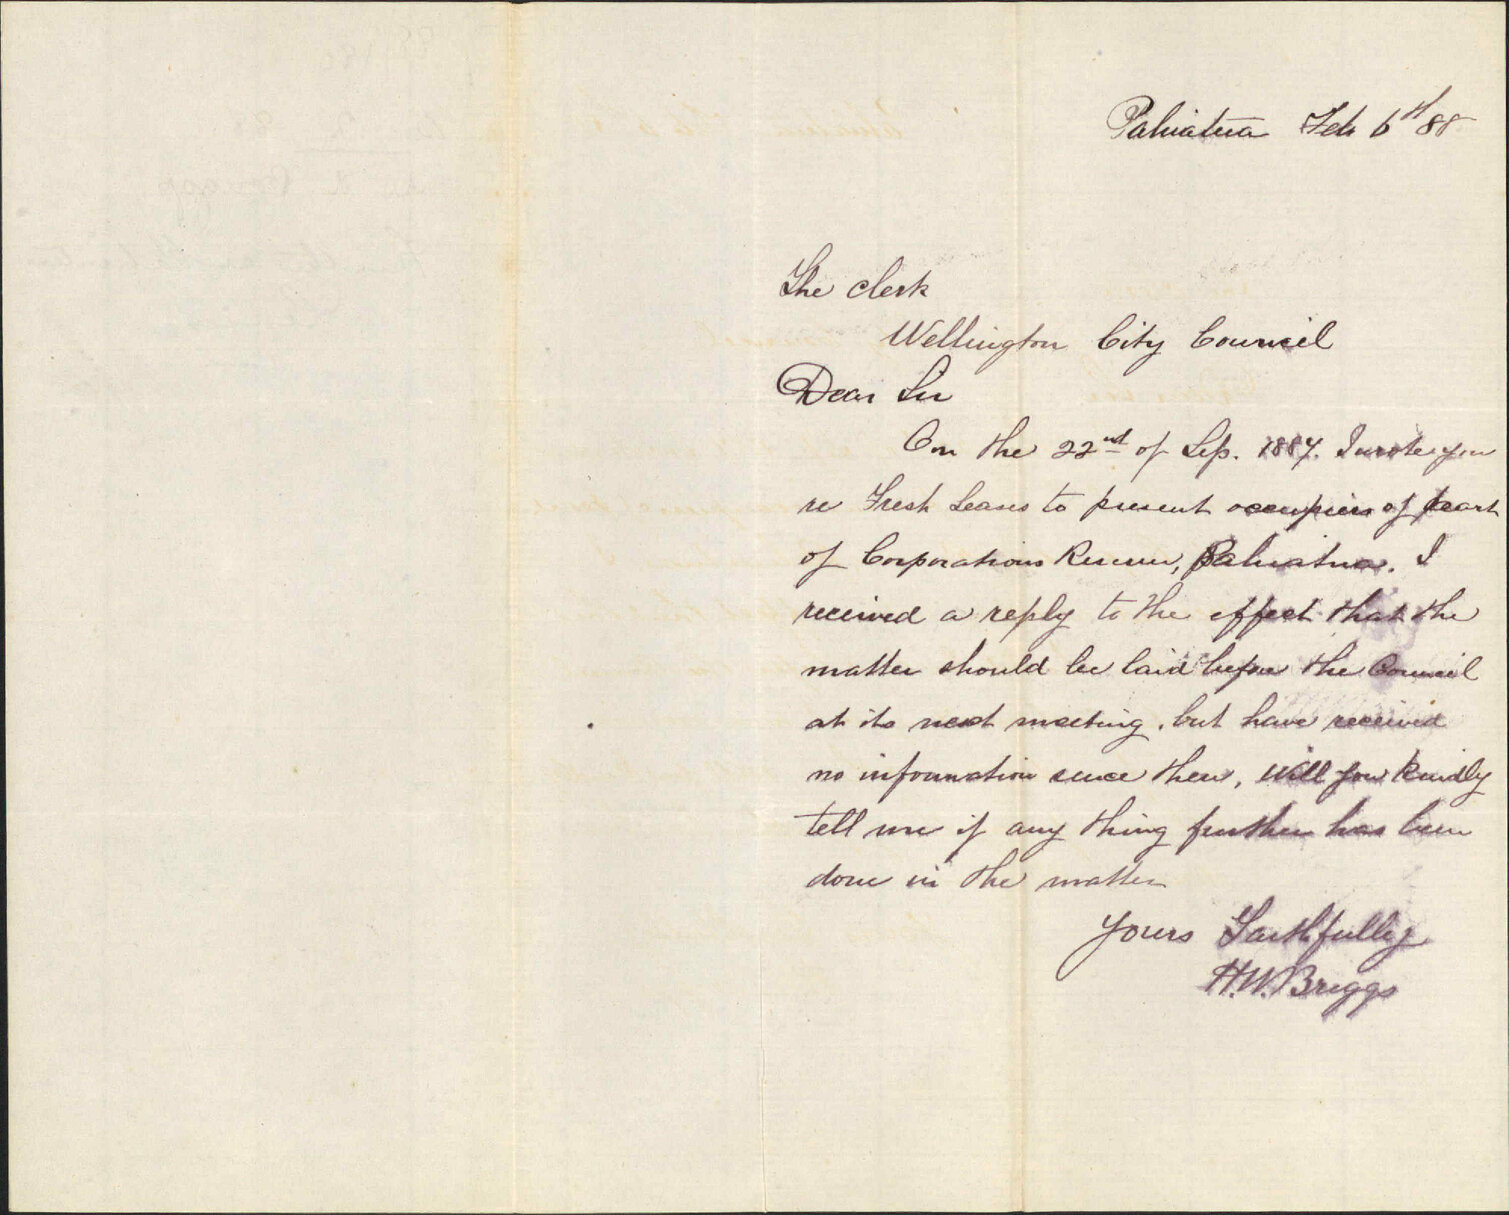 Pahiatua Feb 6th 88
The Clerk
Wellington City Council
Dear Sir
On the 22nd of Sep. 1887. I wrote you
re Fresh Leases to present occupiers of part
of Corporations Reserve, Pahiatua. I
received a reply to the effect that the
matter should be laid before the Council
at its next meeting, but have received
no information since then, Will you kindly
tell me if any thing further has been
done in the matter
Yours Faithfully
H.W. Briggs